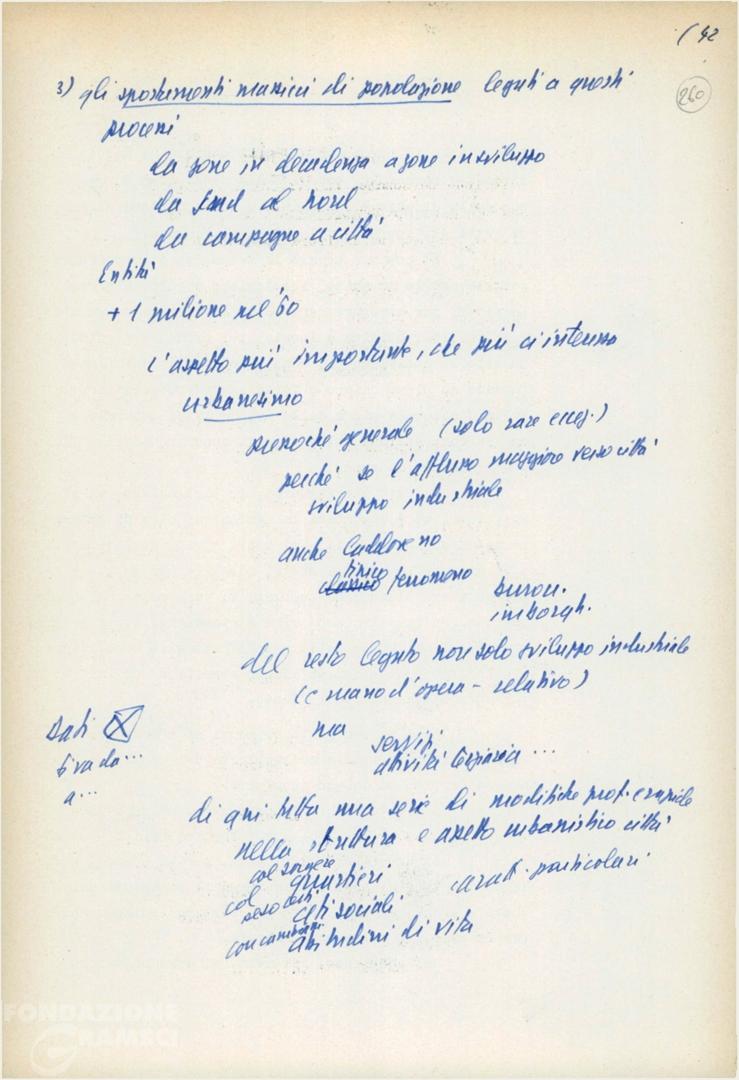 ( 42
260
3) gli spostamenti massicci di popolazione legati a questi
processi
da zone in decadenza a zone in sviluppo
da Sud al Nord
da campagne a città
Entità
+ 1 milione nel '60
l'aspetto più importante, che più ci interessa
urbanesimo
pressoché generale (solo rare ecce.)
perché se l'afflusso maggiore verso città
sviluppo industriale
anche laddove no
tipico
classico fenomeno
burocr.
imborgh.
del resto legato non solo sviluppo industriale
(e mano d'opera - relativo)
ma
servizi
attività terziaria ...
Dati
si va da ...
a ...
di qui tutta una serie di modifiche prof. e rapide
nella struttura e assetto urbanistico città
col sorgere
quartieri
caratt. particolari
col
peso
ceti sociali
abitudini di vita
FONDAZIONE
GRAMSCI